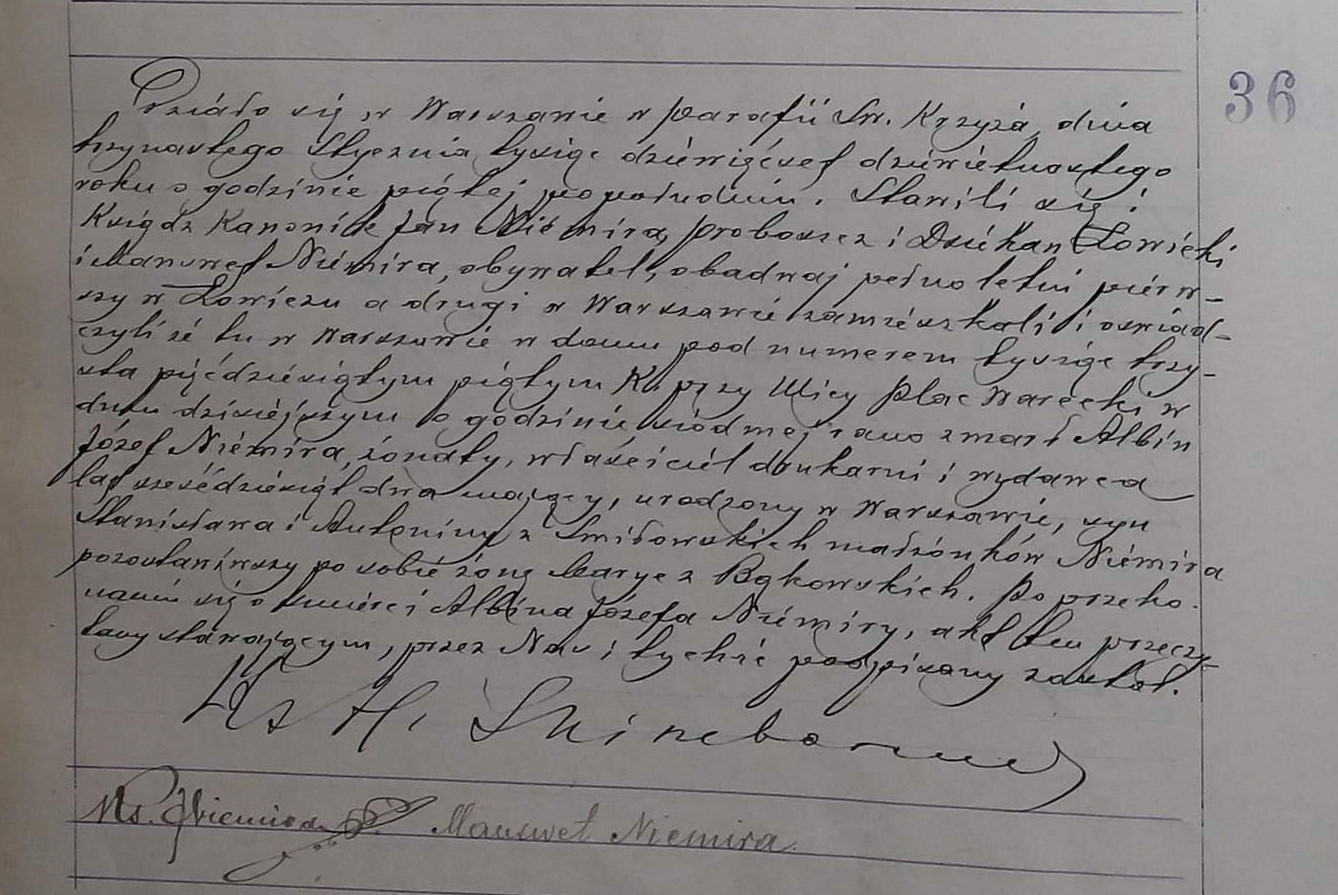 36
Działo się w Warszawie w parafii Św. Krzyża, dnia
trzynastego Stycznia tysiąc dziewięćset dziewiętnastego
roku o godzinie piątej po południu. Stawili się:
Ksiądz Kanonik Jan Niemira, proboszcz i Dziekan Łowicki
i Manswet Niemira, obywatel, obadwaj pełnoletni pierw-
szy w Łowiczu a drugi w Warszawie zamieszkali i oświad-
czyli że tu w Warszawie w domu pod numerem tysiąc trzy-
sta pięćdziesiątym piątym K przy Ulicy Plac Warecki w
dniu dzisiejszym o godzinie siódmej rano zmarł Albin
Józef Niemira, żonaty, właściciel drukarni i wydawca
lat sześćdziesiąt dwa mający, urodzony w Warszawie, syn
Stanisława i Antoniny z Smiłowskich małżonków Niemira
pozostawiwszy po sobie żonę Maryę z Bąkowskich. Po przeko-
naniu się o śmierci Albina Józefa Niemiry, akt ten przeczy-
tany stawającym, przez Nas i tychże podpisany został.
Ks H.
Ks. J Niemira Manswet Niemira.